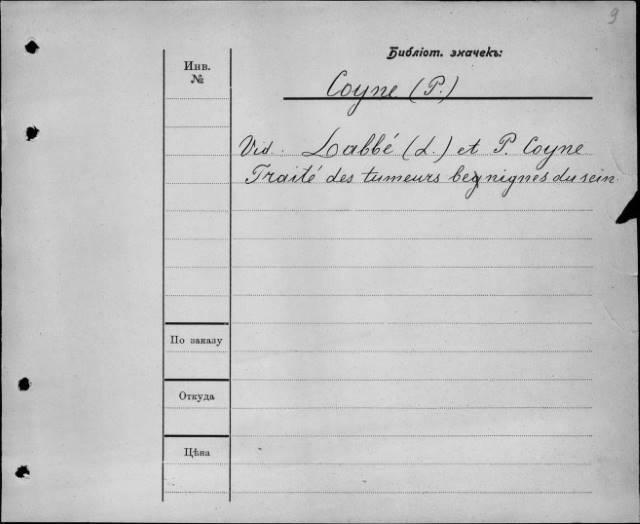 9
Библіот. значекъ:
Инв.
№
Coyne (P.)
Vid. Labbé (L.) et P. Coyne
Traité des tumeurs begnignes du sein
По заказу
Откуда
Цѣна